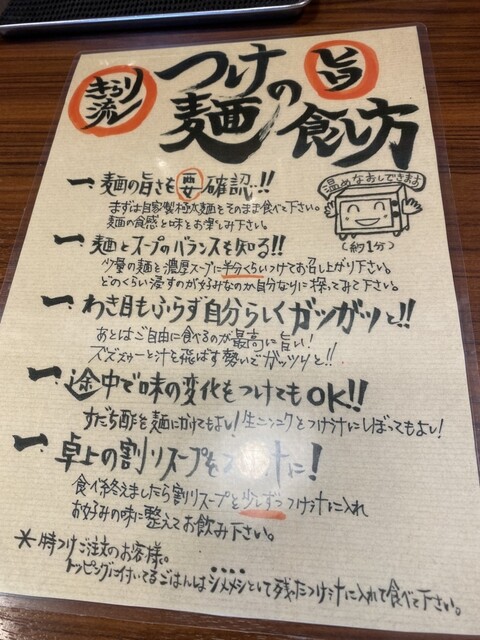 きらり流
つけ麺の旨い食し方
一、麺の旨さを要確認!!
まずは自家製極太麺をそのまま食べて下さい。
麺の食感と味とお楽しみ下さい。
温めなおしできます
(約1分)
一、麺とスープのバランスを知る!!
少量の麺を濃厚スープに半分くらいつけてお召し上がり下さい。
どのくらい浸すのが好みなのか自分なりに探ってみて下さい。
一、わき目もふらず自分らしくガツガツと!!
あとはご自由に食べるのが最高に旨い!
ズズズゥーと汁を飛ばす勢いでガッツリと!!
一、途中で味の変化をつけてもOK!!
すだち酢を麺にかけてもよい!生ニンニクをつけ汁にしぼってもよし!
一、卓上の割りスープをつけ汁に!
食べ終えましたら割りスープを少しずつつけ汁に入れ
お好みの味に整えてお飲み下さい。
*特つけご注文のお客様。
トッピングに付いてるごはんはシメメシとして残ったつけ汁に入れて食べて下さい。